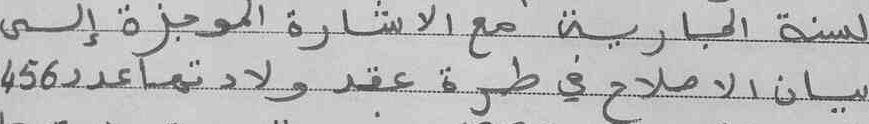 لسنة الجارية مع الاشارة الموجزة إلى
بيان الاصلاح في طرة عقد ولادتها عدد 456